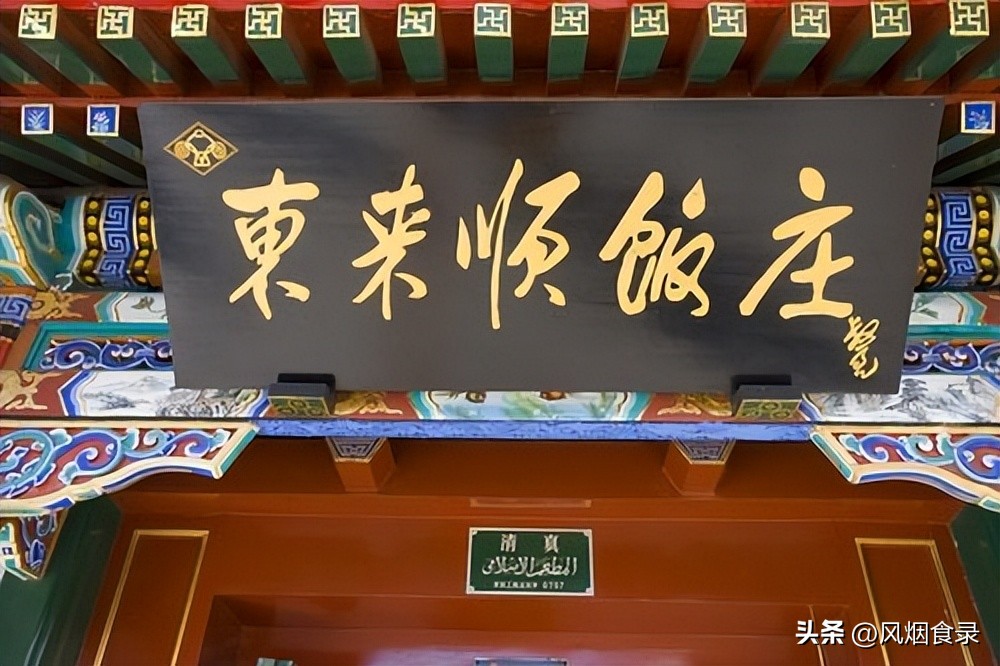 東来順飯庄
清 真
المطعم الإسلامي
0707
头条 @风烟食录